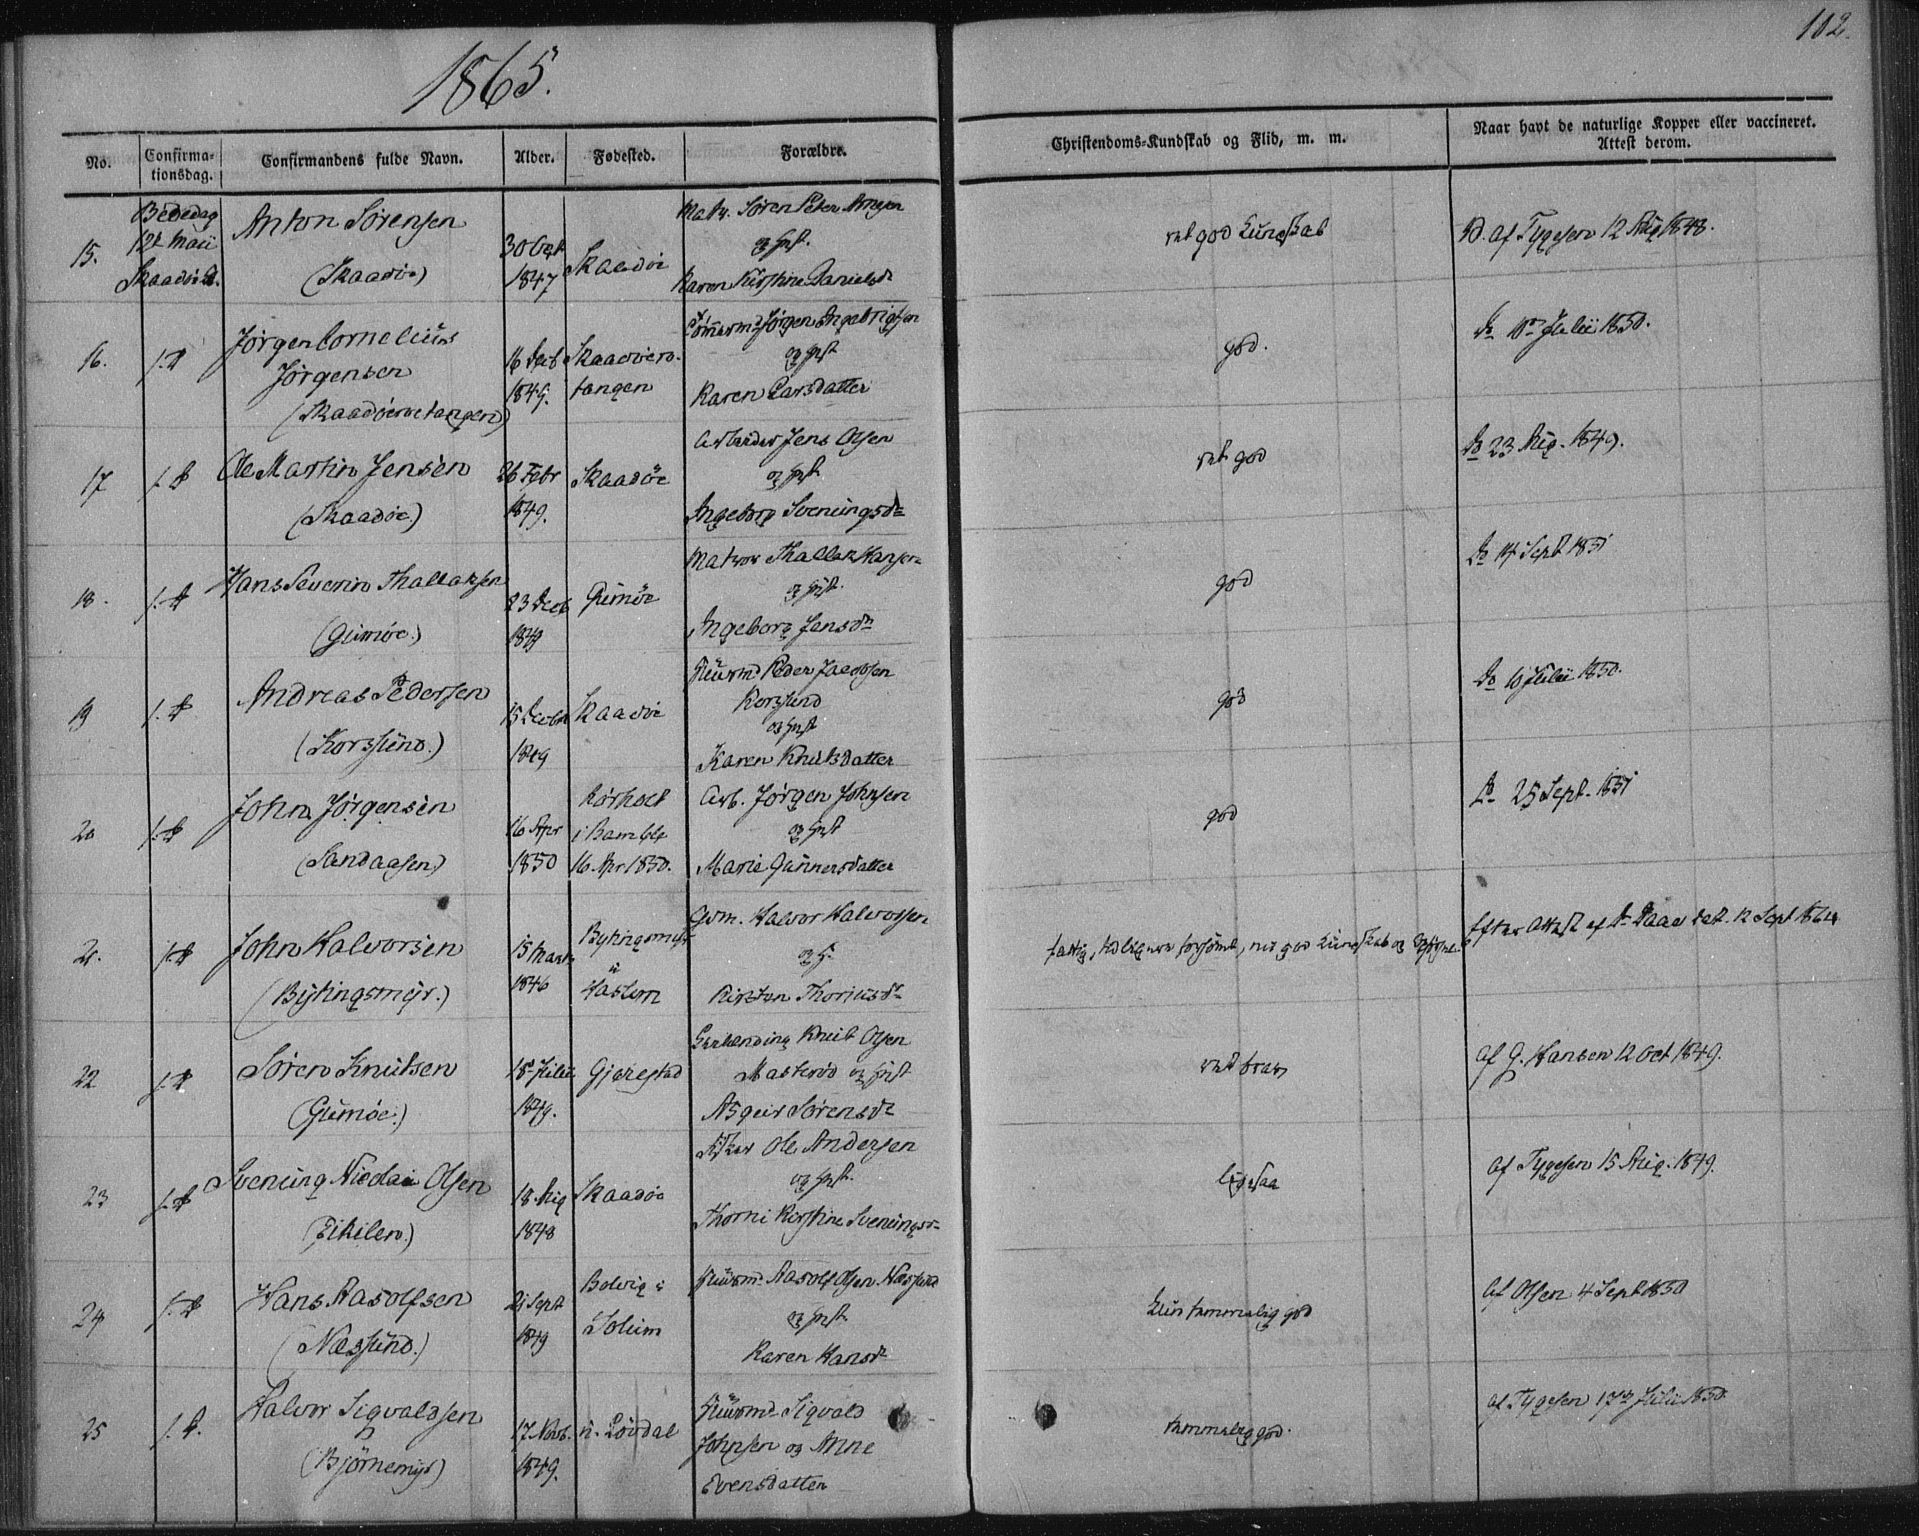 1865.
112.
No.
Confirma-
tionsdag.
Confirmandens fulde Navn.
Alder.
Fødested.
Forældre.
Christendoms-Kundskab og Flid, m. m.
Naar havt de naturlige Kopper eller vaccineret.
Attest derom.
15.
Bededag
12te Maii
Anton Sørensen
(Skaadøe)
30 Oct
1847
Skaadøe
Matr. Søren Peter
og Hust.
Karen Kirstine Danielsd
ret god Kundskab
V. af Tygesen 12 Aug 1848.
16.
Jørgen Cornelius
Jørgensen
(Skaadøeroetangen)
16 Decb
1849.
Skaadøero-
tangen
Tømmermd Jørgen Ingebrigtsen
og Hust
Karen Larsdatter
god.
do 10de Julii 1850.
17
Ole Martin Jensen
(Skaadøe)
26 Febr
1849.
Skaadøe
Arbeider Jens Olsen
og Hust.
Ingeborg Sveningsdr
ret god
do 23 Aug. 1849.
18.
Hans Severin Thallaksen
(Gumøe.)
23 Decb
1849
Gumøe
Matros Thallak Hansen
og Hust.
Ingeborg Jensdr
god
do 14 Sept 1851
19
Andreas Pedersen
(Korssund.)
15 Decbr
1849
Skaadøe
Huusmd Peder Jacobsen
Korssund
og Hust
Karen Knutsdatter
god
do 10 Julii 1850.
20
John Jørgensen
(Sandaasen)
16 Apr
1850
Rørholt
i Bamble
16 Apr 1850.
Arb. Jørgen Johnsen
og Hust
Marie Gunnersdatter
god
do 25 Sept. 1851
21.
John Halvorsen
(Bytingsmyr.)
15 Marts
1846
Bytingsmyr
Gdm. Halvor Halvorsen
og H.
Kirsten Thoriusdr
fattig, tidligere forsømt, nu god Kundskab og
Efter Attest af Dr Daae dat. 12 Sept 1864
22
Søren Knutsen
(Gumøe.)
18de Julii
1849.
Gjerestad
Knut Olsen
og Hust
Asgier Sørensdr
ret brav
af G. Hansen 12 Oct 1849.
23
Svenung Nicolai Olsen
18 Aug
1848
Skaadøe
Ole Andersen
og Hust.
Thorni Kirstine Sveningsdr
ligesaa
af Tygesen 15 Aug. 1849.
24
Hans Aasolfsen
(Næssund.)
21 Sept
1849
Bolvig i
Solum
Huusmd Aasolf Olsen Næssund
og Hust.
Karen Hansdr
kun temmelig god
af Olsen 4 Sept 1850
25
Halvor Sigvaldsen
(Bjørnemyr)
17 Novb.
1849.
n. Løvdal
Huusmd Sigvald
Johnsen og Anne
Evensdatter
temmelig god.
af Tygesen 17de Julii 1850.